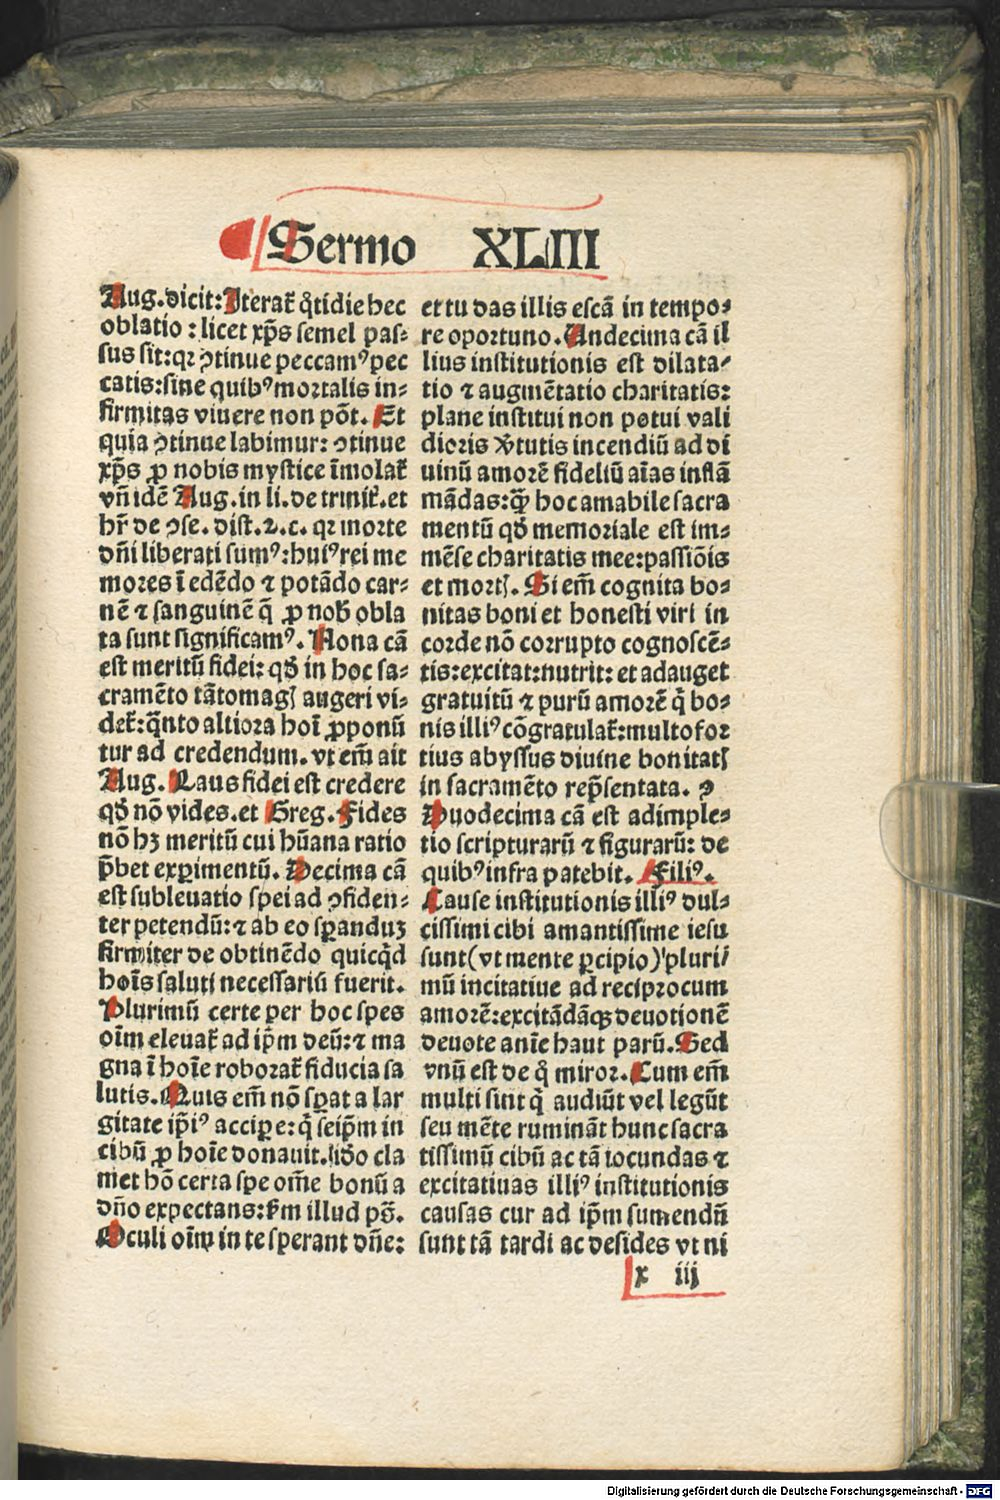 Sermo XLIII
Aug. dicit: Iterat᷑ q̄tidie hec
oblatio : licet xp̄s semel pas⸗
sus sit: qꝛ ꝯtinue peccamꝰ pec
catis: sine quibꝰ mortalis in⸗
firmitas viuere non pōt. Et
quia ꝯtinue labimur: ꝯtinue
xp̄s ꝓ nobis mystice īmolat᷑
vn̄ idē Aug. in li. de trinit᷑. et
hr̄ de ꝯse. dist. 2. c. qꝛ morte
dn̄i liberati sumꝰ: huiꝰ rei me
mores ī edēdo ⁊ potādo car⸗
nē ⁊ sanguinē q̄ ꝓ nob̄ obla
ta sunt significamꝰ. Nona cā
est meritū fidei: qđ in hoc sa⸗
cramēto tātomagꝭ augeri vi⸗
det᷑: q̄nto altiora hoī ꝓponū
tur ad credendum. vt em̄ ait
Aug. Laus fidei est credere
qđ nō vides. et Greg. Fides
nō hꝫ meritū cui hūana ratio
p̄bet exꝑimentū. Decima cā
est subleuatio spei ad ꝯfiden⸗
ter petendū: ⁊ ab eo sꝑanduꝫ
firmiter de obtinēdo quicq̄d
hoīs saluti necessariū fuerit.
Plurimū certe per hoc spes
oīm eleuat᷑ ad ip̄m deū: ⁊ ma
gna ī hoīe roborat᷑ fiducia sa
lutis. Quis em̄ nō sꝑat a lar
gitate ip̄iꝰ acciꝑe: q̄ seip̄m in
cibū ꝓ hoīe donauit. iđo cla
met hō certa spe om̄e bonū a
dn̄o expectans: ẜm illud pṡ.
Oculi oīm in te sperant dn̄e:
et tu das illis escā in tempo⸗
re oportuno. Undecima cā il
lius institutionis est dilata⸗
tio ⁊ augmētatio charitatis:
plane institui non potui vali
dioris v̄tutis incendiū ad di
uinū amorē fideliū aīas inflā
mādas: ꝙ̄ hoc amabile sacra
mentū qđ memoriale est im⸗
mēse charitatis mee: passiōis
et mortꝭ. Si em̄ cognita bo⸗
nitas boni et honesti viri in
corde nō corrupto cognoscē⸗
tis: excitat: nutrit: et adauget
gratuitū ⁊ purū amorē q̄ bo⸗
nis illiꝰ cōgratulat᷑: multo for
tius abyssus diuine bonitatꝭ
in sacramēto rep̄sentata. ?
Duodecima cā est adimple⸗
tio scripturarū ⁊ figurarū: de
quibꝰ infra patebit. Filiꝰ.
Cause institutionis illiꝰ dul⸗
cissimi cibi amantissime iesu
sunt (vt mente ꝑcipio) pluri⸗
mū incitatiue ad reciprocum
amorē: excitādāqꝫ deuotionē
deuote anīe haut parū. Sed
vnū est de q̄ miror. Cum em̄
multi sint q̄ audiūt vel legūt
seu mēte rumināt hunc sacra
tissimū cibū ac tā iocundas ⁊
excitatiuas illiꝰ institutionis
causas cur ad ip̄m sumendū
sunt tā tardi ac desides vt ni
x iij
Digitalisierung gefördert durch die Deutsche Forschungsgemeinschaft - DFG